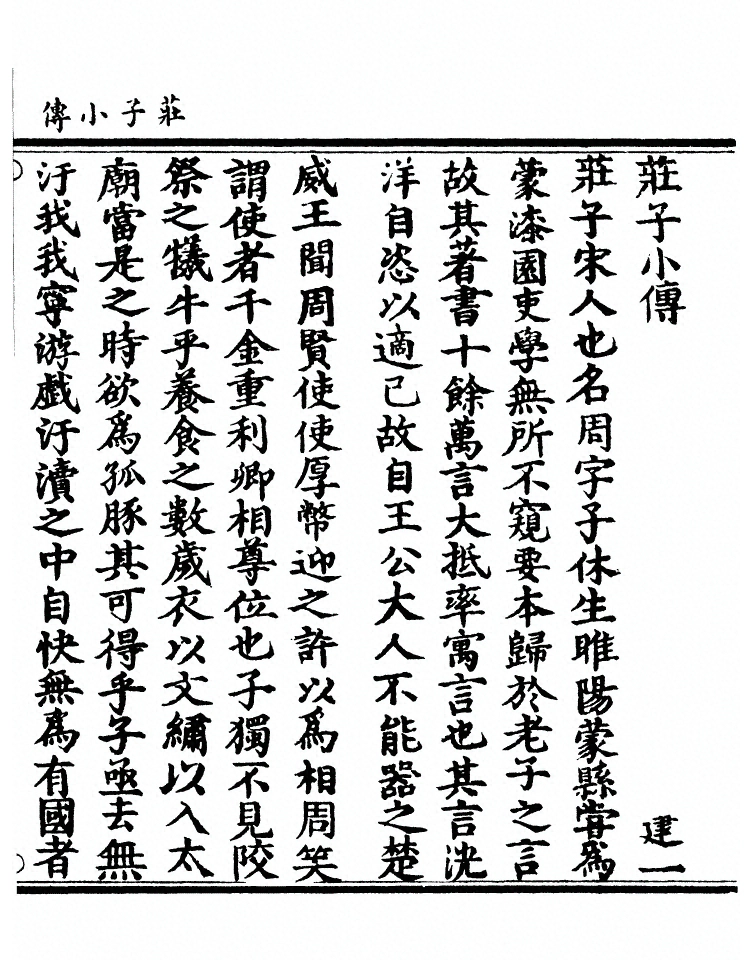 莊子小傳
莊子小傳
建一
莊子宋人也名周字子休生睢陽蒙縣甞爲
蒙漆園吏學無所不窺要本歸於老子之言
故其著書十餘萬言大抵率寓言也其言洸
洋自恣以適己故自王公大人不能器之楚
威王聞周賢使使厚幣迎之許以爲相周笑
謂使者千金重利卿相尊位也子獨不見郊
祭之犧牛乎養食之數歲衣以文繡以入太
廟當是之時欲爲孤豚其可得乎子亟去無
汙我我寧游戲汙瀆之中自快無爲有國者